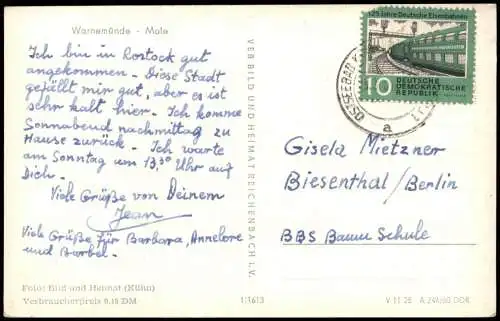 Warnemünde - Mole
Ich bin in Rostock gut
angekommen. Diese Stadt
gefällt mir gut, aber es ist
sehr kalt hier. Ich komme
Sonnabend nachmittag zu
Hause zurück. Ich warte
am Sonntag um 13,30 Uhr auf
Dich.
Viele Grüße von Deinem
Jean
Viele Grüße für Barbara, Annelore
und Barbel.
Foto: Bild und Heimat (Kühn)
Verbraucherpreis 0.15 DM
1/1613
VERBILD UND HEIMAT REICHENBACH i. V.
125 Jahre Deutsche Eisenbahnen
10
DEUTSCHE
DEMOKRATISCHE
REPUBLIK
OSTSEEBAD
a
Gisela Mietzner
Biesenthal/Berlin
BBS Baum Schule
V 11 28 A 249/60 DDR